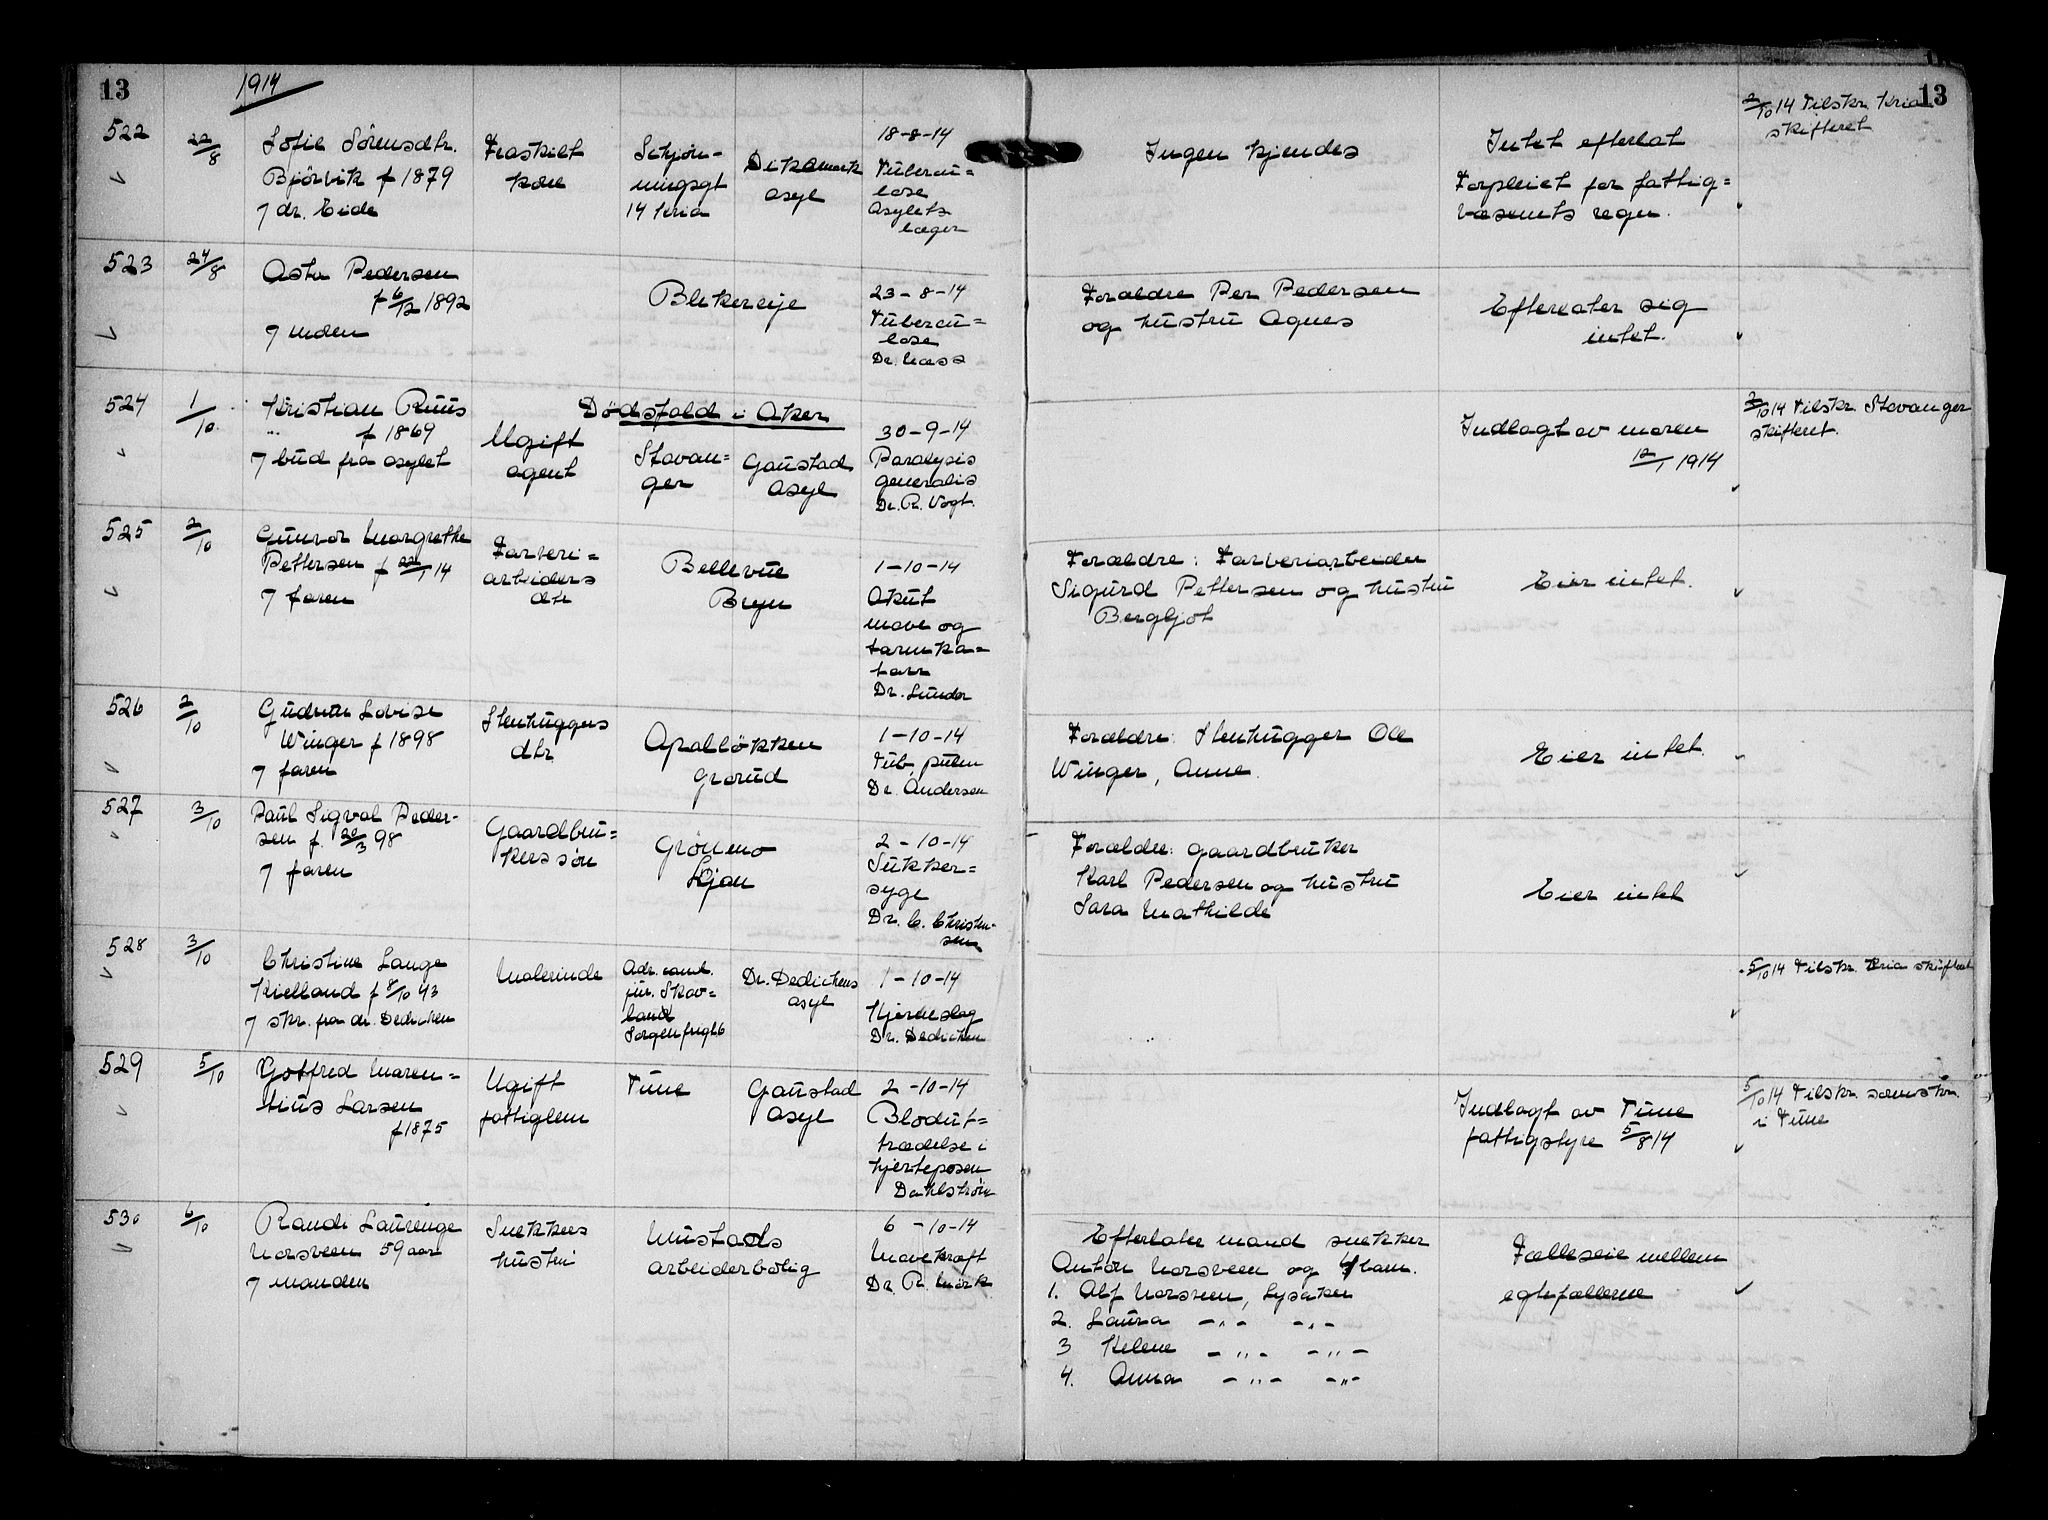 13
1914
13
522
22/8
Sofie Sörensdtr.
Björvik f 1879
7 dr. Eide
Fraskilt
kone
Schjön-
ningsgt
14 Kria
Dikemark
asyl
18-8-14
Tubercu=
lose
Asylets
læger
Ingen kjendes
Intet efterlat
Forpleiet for fattig=
væsenets regn.
2/10 14 Tilskr. Kria
skifteret
523
24/8
Asta Pedersen
f 6/12 1892
7 inden
Blekereie
23-8-14
Tubercu=
lose
Dr. Næss
Forældre Per Pedersen
og hustru Agnes
Efterlater sig
intet.
524
1/10
Kristian Ruus
f 1869
7 bud fra asylet
Dödsfald i Aker
Ugift
agent
Stavan=
ger
Gaustad
Asyl
30-9-14
Paralysis
generalis
Dr. R. Vogt.
Indlagt av moren
12/1 1914
2/10 14 Tilskr. Stavanger
skifteret.
525
2/10
Gunvor Margrethe
Pettersen f 22/1 14
7 faren
Farveri=
arbeiders
dtr
Bellevue
Bryn
1-10-14
Akut
mave og
tarmka=
tarr
Dr. Lunder
Forældre: Farveriarbeider
Sigurd Pettersen og hustru
Bergljot
Eier intet.
526
2/10
Gudrun Lovise
Winger f 1898
7 faren
Stenhuggers
dtr
Apalløkken
Grorud
1-10-14
Tub. pulm
Dr. Andersen
Forældre: Stenhugger Ole
Winger, Anne.
Eier intet.
527
3/10
Paul Sigval Peder-
sen f. 20/3 98
7 faren
Gaardbru=
kers søn
Grönmo
Ljan
2-10-14
Sukker=
syge
Dr. C. Christen-
sen
Forældre: gaardbruker
Karl Pedersen og hustru
Sara Mathilde
Eier intet
528
3/10
Christine Lange
Kielland f 8/10 43
7 skr. fra dr. Dedichen
Malerinde
Adr. cand.
jur. Skav=
land
Sorgenfrigt 6
Dr. Dedichens
asyl
1-10-14
Hjerneslag
Dr. Dedichen
5/10 14 Tilskr. Kria skifteret
529
5/10
Gotfred Maren=
tius Larsen
f 1875
Ugift
fattiglem
Tune
Gaustad
Asyl
2-10-14
Blodut=
trædelse i
hjerteposen
Dahlström
Indlagt av Tune
fattigstyre 5/8 14
5/10 14 Tilskr. sorenskr.
i Tune
530
6/10
Randi Laurenze
Norsveen 59 aar
7 manden
Snekkers
hustru
Mustads
arbeiderbolig
6-10-14
Mavekræft
Dr. R. Mörk
Efterlater mand snekker
Anton Norsveen og 4 barn.
1. Alf Norsveen, Lysaker
2. Laura -"- -"-
3 Helene -"- -"-
4. Anna -"- -"-
Fælleseie mellem
egtefællerne